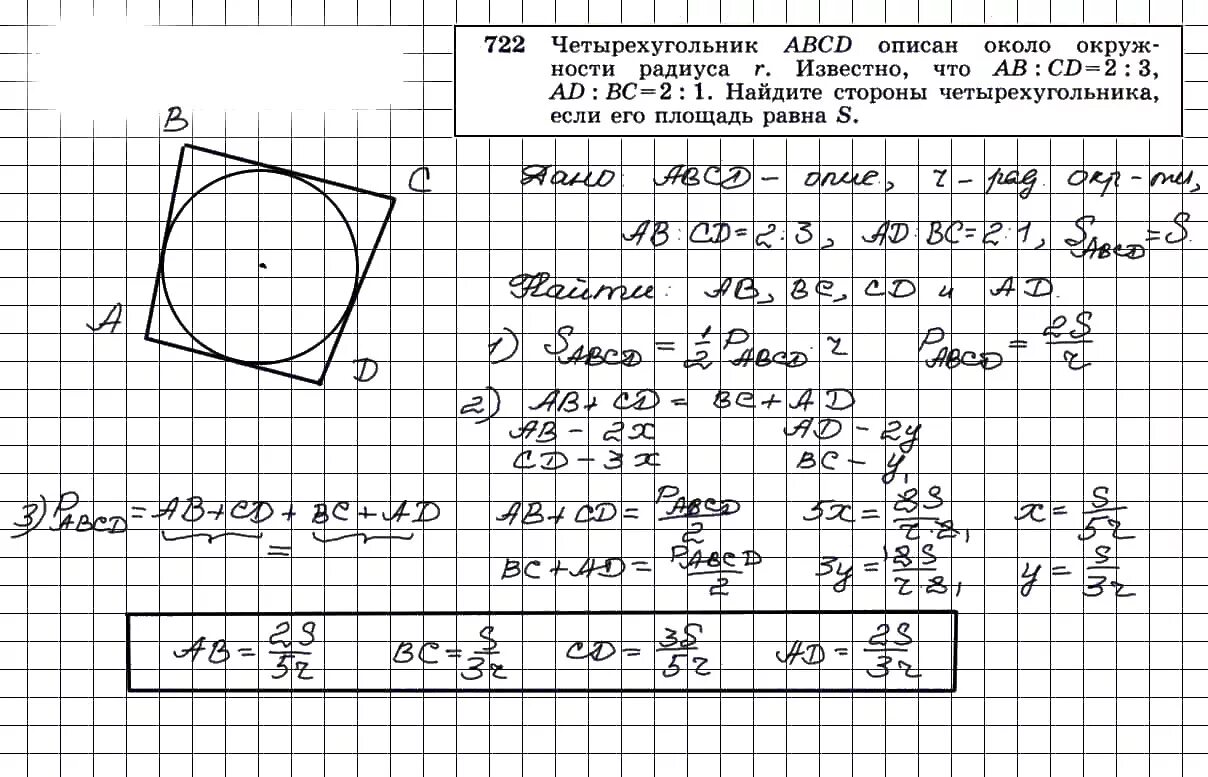 722 Четырехугольник ABCD описан около окруж-
ности радиуса r. Известно, что AB : CD = 2 : 3,
AD : BC = 2 : 1. Найдите стороны четырехугольника,
если его площадь равна S.
B
C
A
D
Дано: ABCD – опис., r – рад. окр-ти,
AB : CD = 2 : 3, AD : BC = 2 : 1, S_ABCD = S.
Найти: AB, BC, CD и AD.
1) S_ABCD = 1/2 P_ABCD · r P_ABCD = 2S/r
2) AB + CD = BC + AD
AB – 2x AD – 2y
CD – 3x BC – y,
3) P_ABCD = AB + CD + BC + AD AB + CD = P_ABCD/2 5x = 2S/(r·2), x = S/5r
= BC + AD = P_ABCD/2 3y = 2S/(r·2), y = S/3r
AB = 2S/5r BC = S/3r CD = 3S/5r AD = 2S/3r